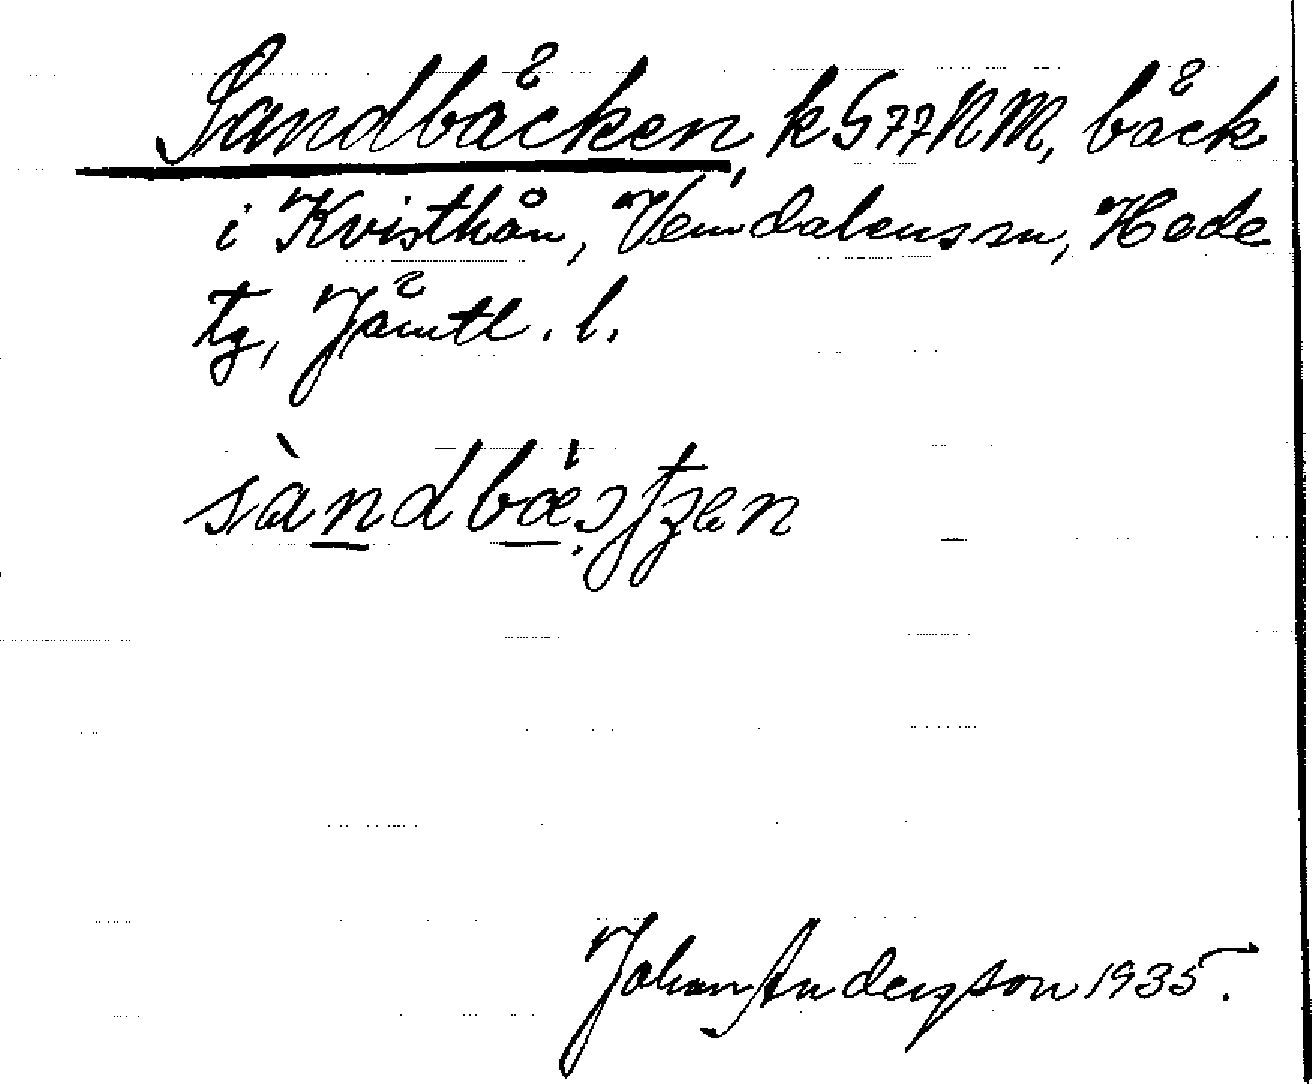 Sandbäcken, k 577 NM, bäck
i Kvisthån, Vemdalens sn, Hede
tg, Jämtl. l.
Johan Anderson 1935.